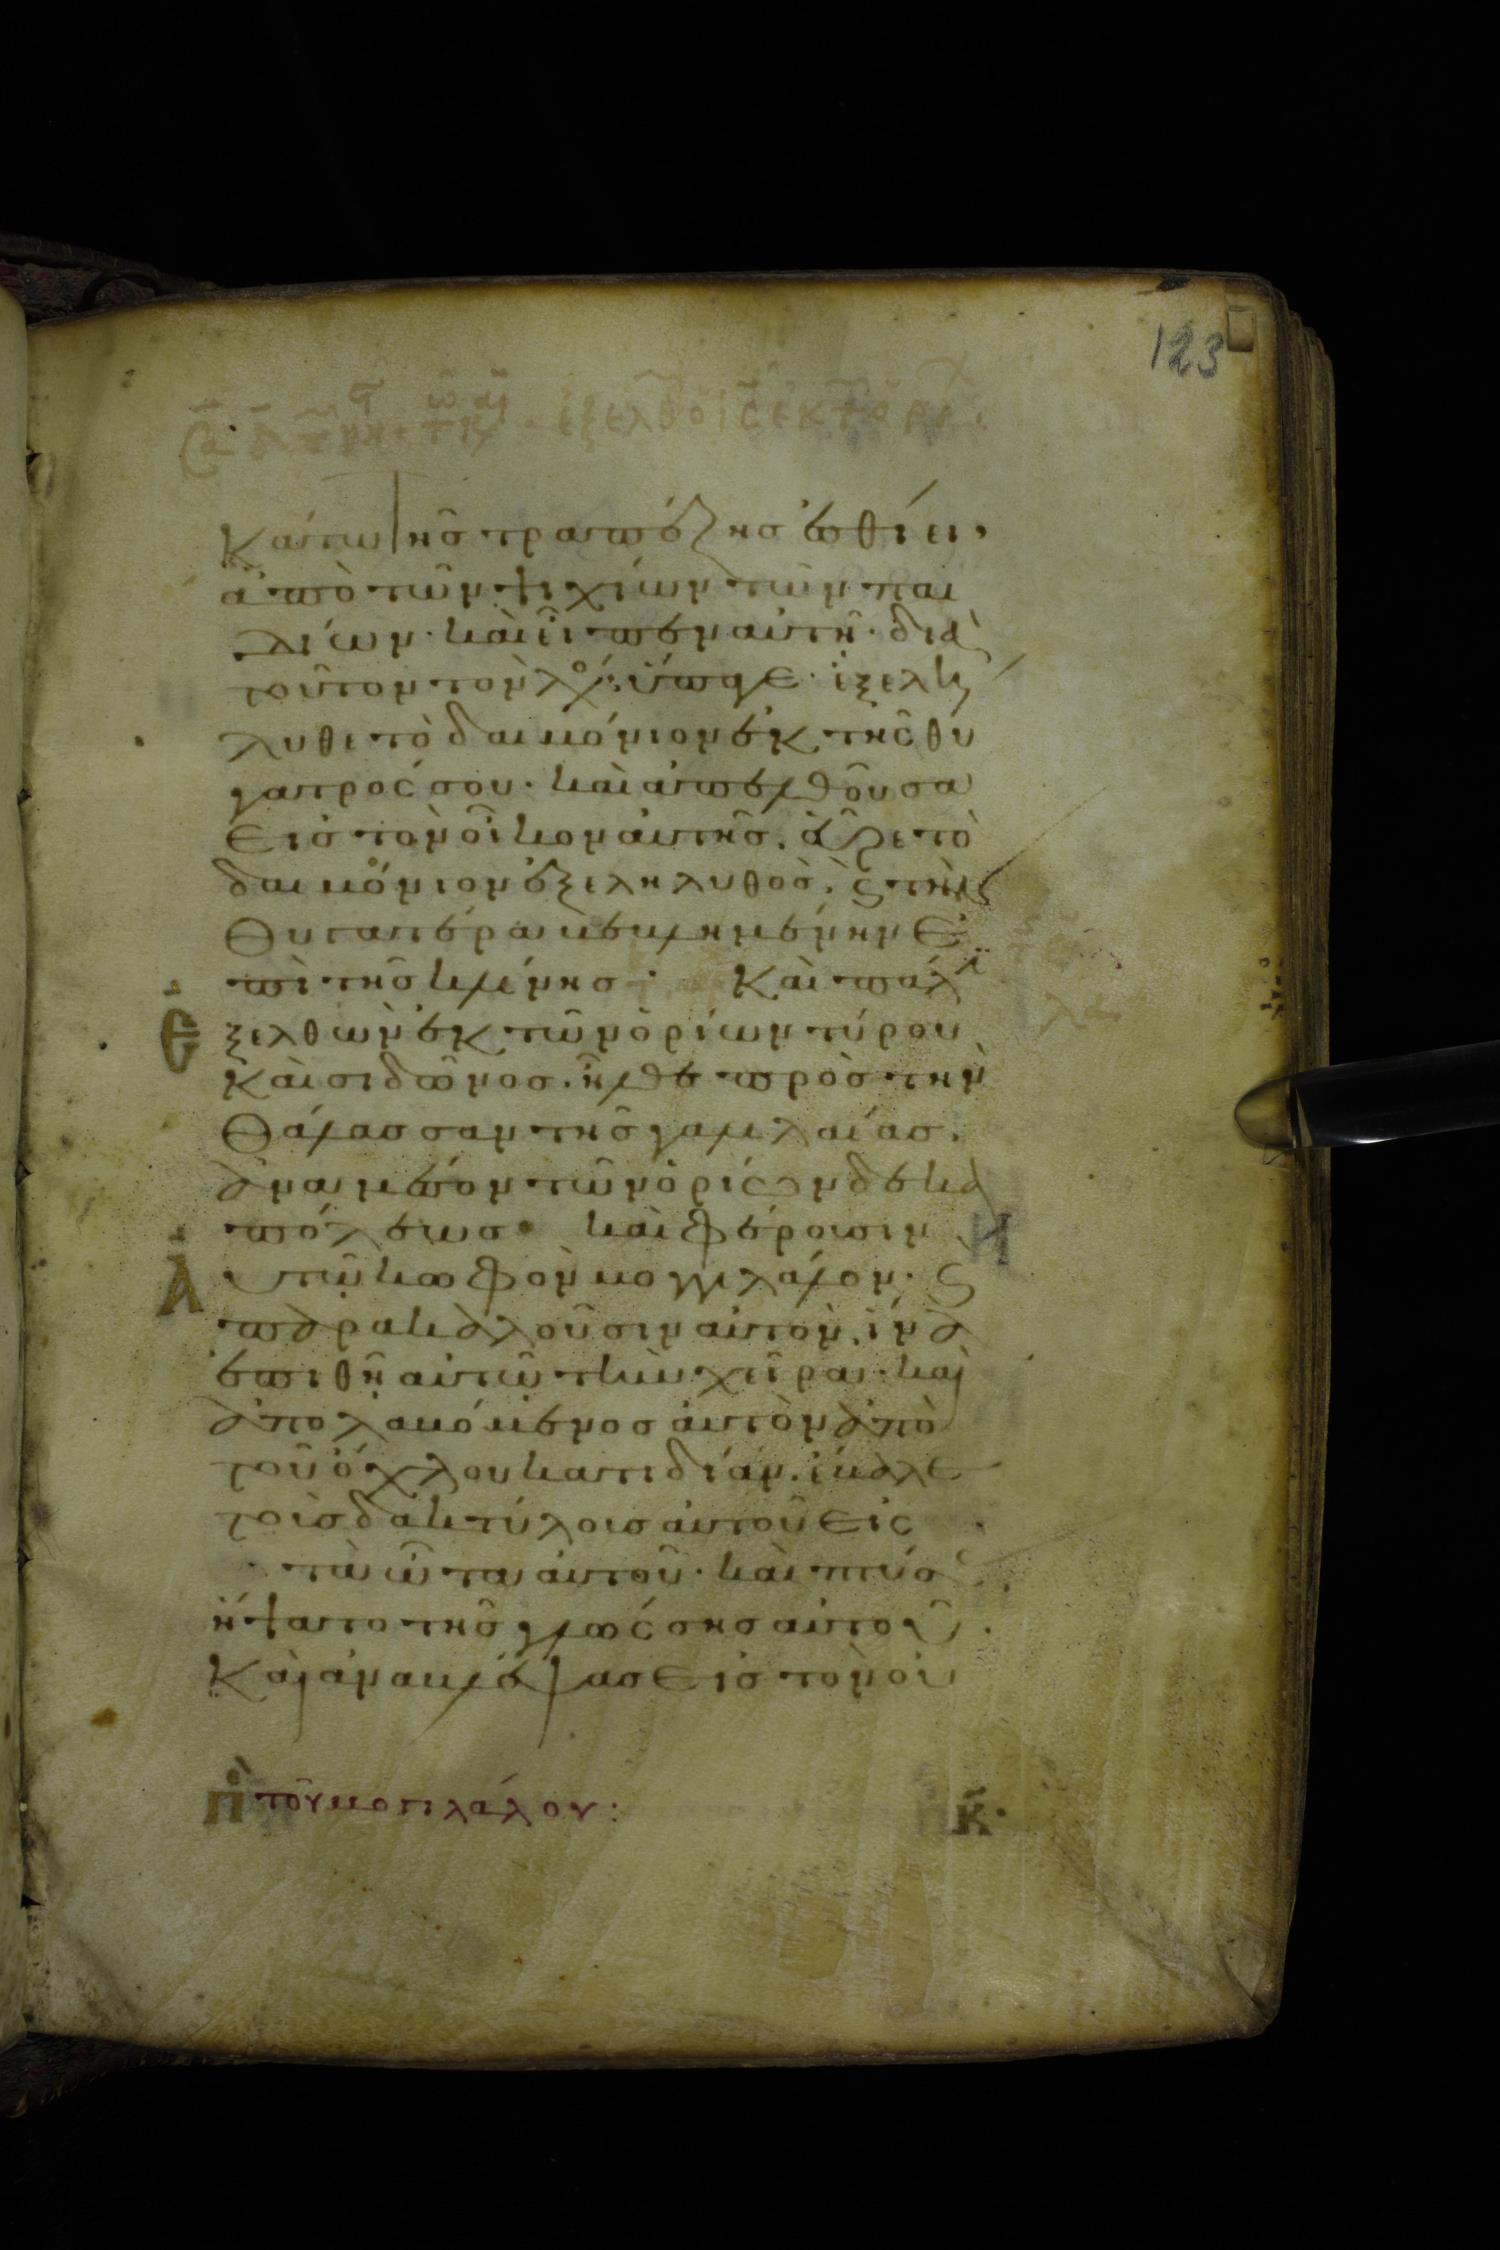 123
ἐξελθὼν ὁ ἰς ἐκ τ ὁρι
Κάτω τῆσ τραπέζησ ἐσθίει,
ἀπὸ τῶν ψιχίων τῶν παι
δίων· καὶ εἶπεν αὐτῆ· διὰ
τοῦτον τὸν λόγ· ὕπαγε· ἐξελή
λυθε τὸ δαιμόνιον ἐκ τῆς θυ
γατρός σου· καὶ ἀπελθοῦσα
εἰσ τὸν οἶκον αὐτῆσ, εὗρε τὸ
δαιμόνιον ἐξεληλυθὸσ, ϗ τὴν
Θυγατέρα βεβλημένην ἐ
πὶ τῆσ κλίνησ· Καὶ πάλι
ξελθὼν ἐκ τῶν ὁρίων τύρου
Καὶ σιδῶνοσ, ἦλθε πρὸσ τὴν
Θάλασσαν τῆσ γαλιλαίασ,
ἀναμέσον τῶν ὁρίων δεκα
πόλεωσ· καὶ φέρουσιν
υτῶ κωφὸν μογγιλάλον· ϗ
παρακαλοῦσιν αὐτὸν, ἵνα
ἐπιθῆ αὐτῶ τὴν χεῖρα· καὶ
ἀπολαβόμενοσ αὐτὸν ἀπὸ
τοῦ ὄχλου κατιδίαν, ἔβαλε
τοὶσ δακτύλοισ αὐτοῦ εἰς
τὰ ὦτα αὐτοῦ· καὶ πτύσ
ἥψατο τῆσ γλώσσησ αὐτοῦ·
Καὶ ἀναβλέψασ εἰσ τὸν οὐ
Πὲ τοῦ μογιλάλου:
κ̄·